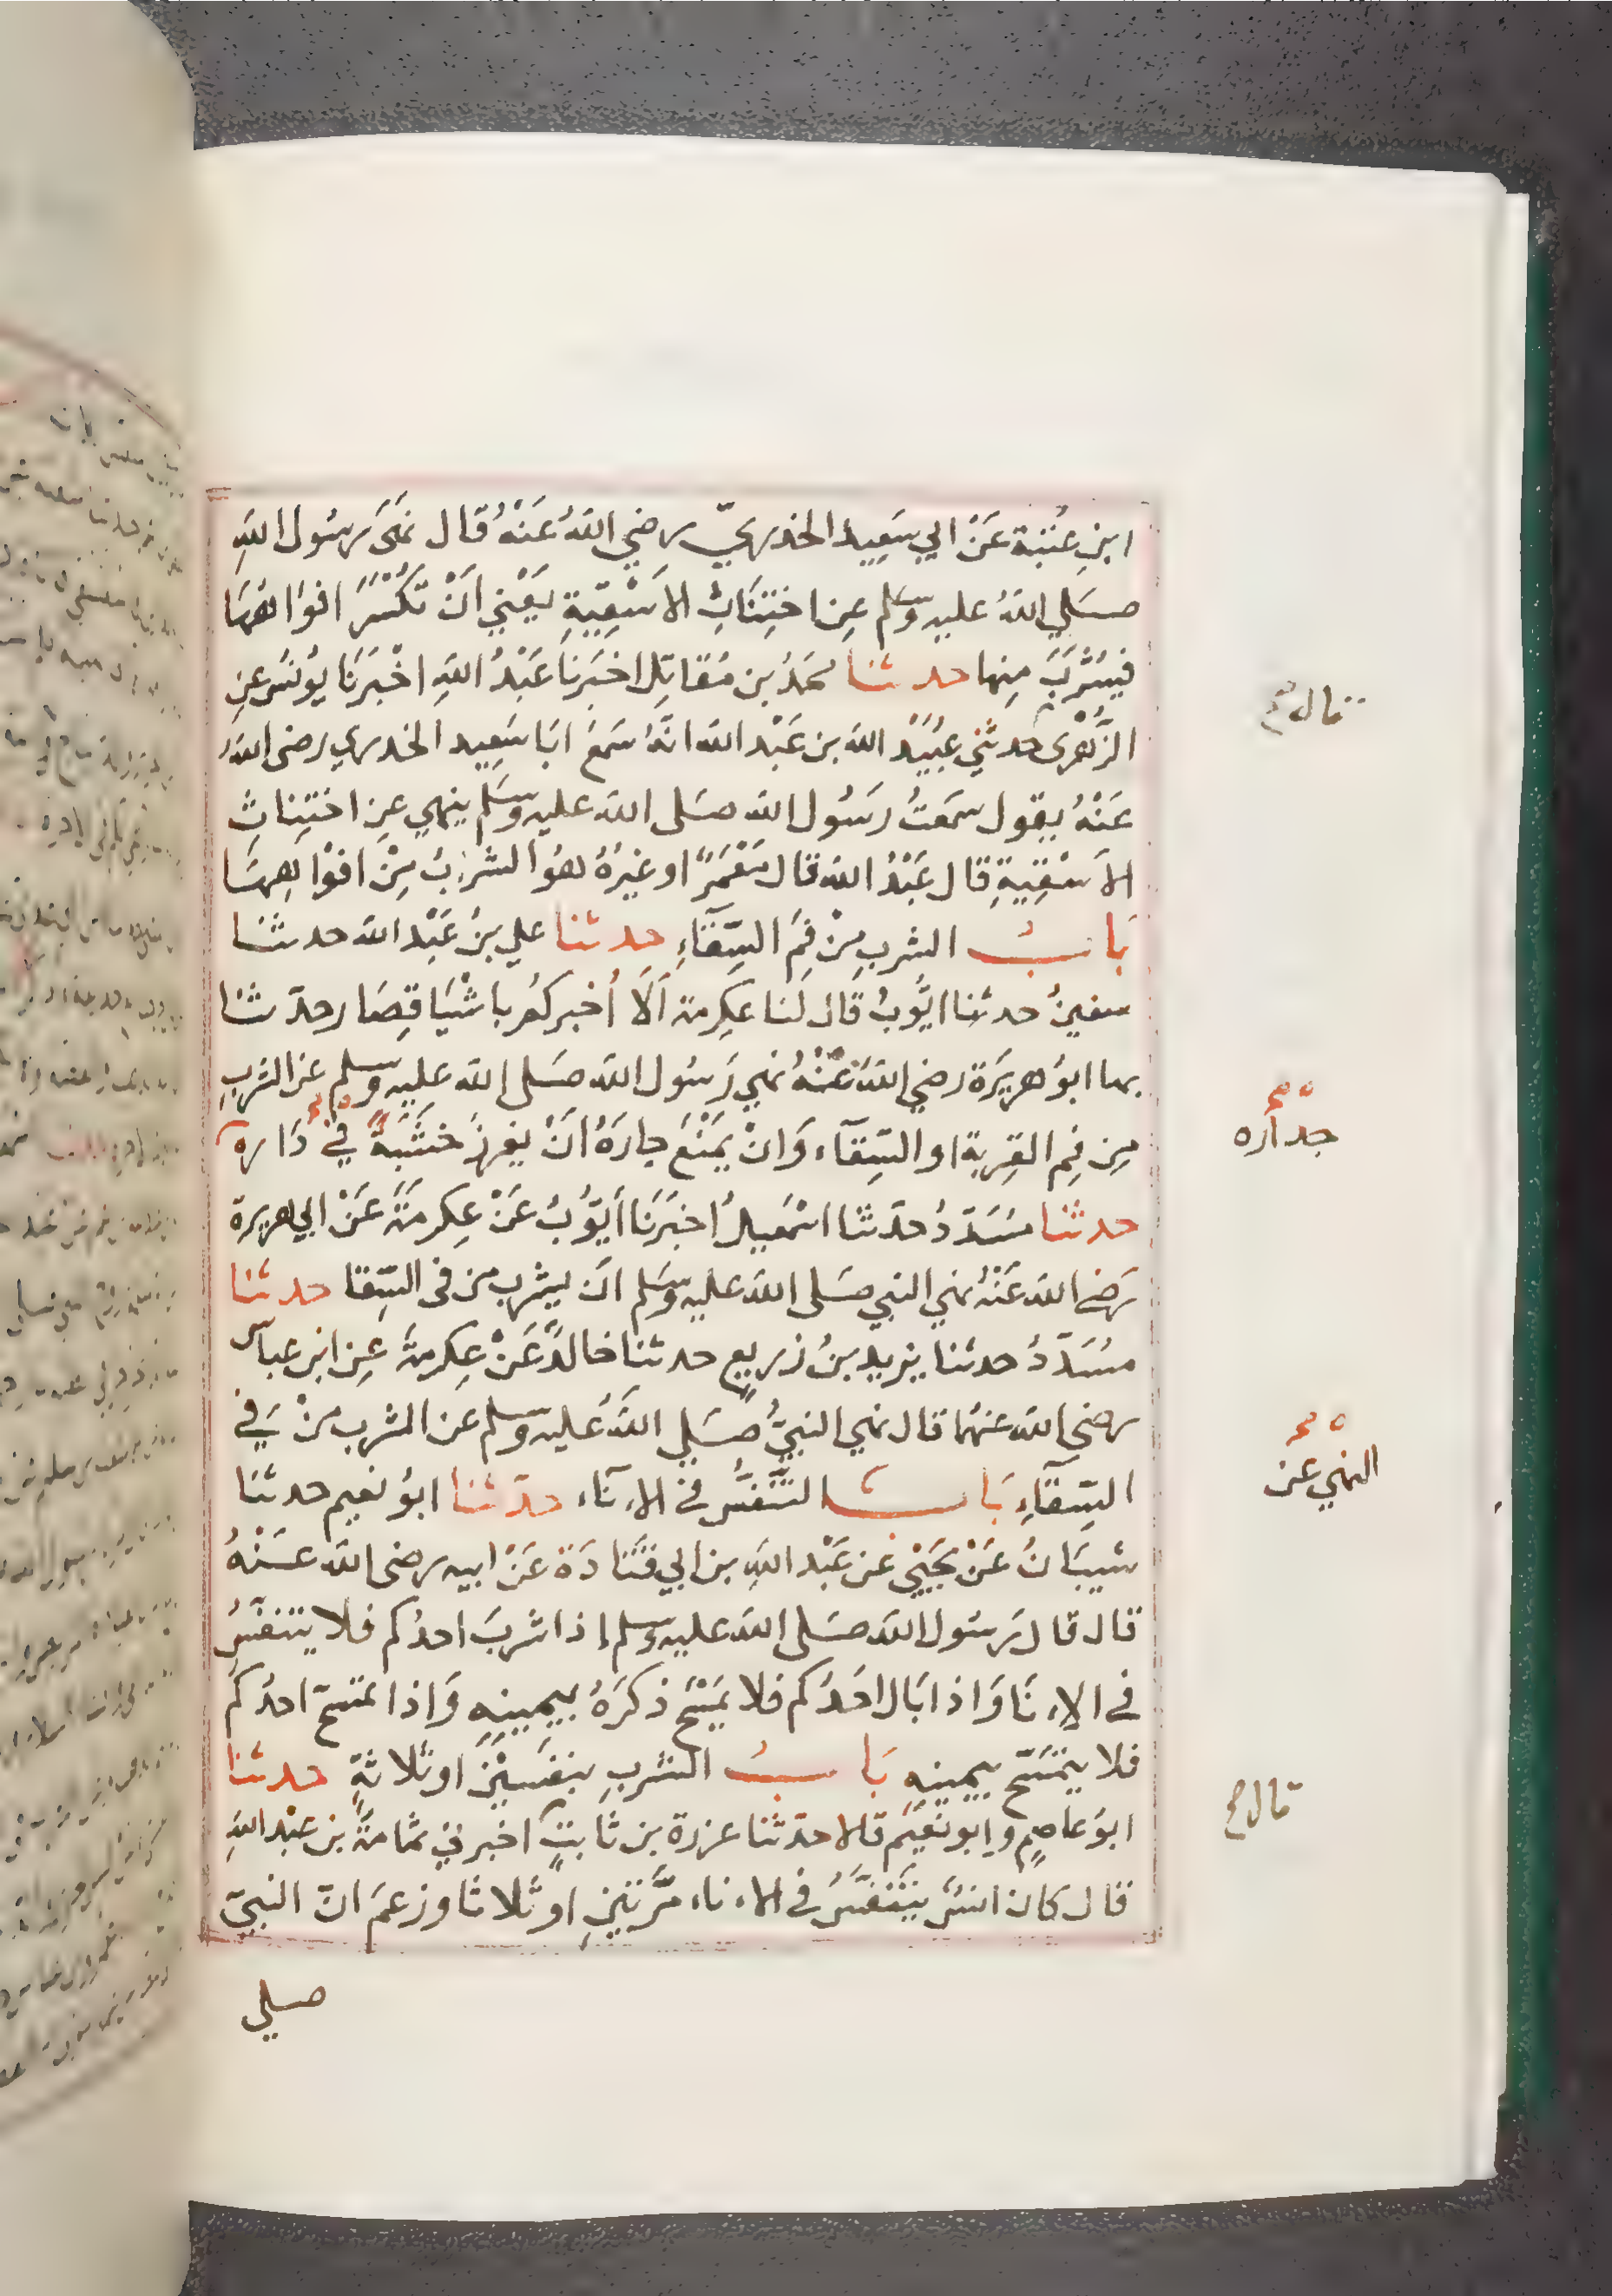 ابنِ عُتبة عَنْ ابي سَعِيد الخدريّ رضي اللهُ عَنْهُ قال نَهَى رسُول اللهِ
صَلي اللهُ عليه وسلم عِن اختِنَاثِ الاَسْقِيَةِ يَعْنِي اَنْ تُكْسَرَ افوَاهُهَا
فيُشْرَبَ مِنها حدثنا محمَدُ بن مُقاتِل اخبَرنا عَبْدُ اللهِ اخْبَرَنَا يوُنسُ عن
الزُّهْرى حدثني عُبَيْدُ الله بن عَبْد الله انَّهُ سَمعَ ابَا سَعِيد الخدري رضى اللهُ
عَنْهُ يقول سَمعتُ رسُول الله صَلى الله عليه وسَلم ينهي عِن اختِناثِ
الاَسْقِيةِ قال عَبْدُ الله قال مَعْمَرٌ او غيرُهُ هوُ الشربُ مِنْ افوَاهِهَا
بَابُ الشربِ مِنْ فِمَ السِّقَآءِ حدثنا علي بنُ عَبْد الله حدثنَا
سفينُ حدثنا ايُّوبُ قال لَنا عِكرمة اَلَا اُخبركمُ باشْيَا قِصَار حدّثنَا
بها ابوُ هريَرَة رضي اللهُ عَنْهُ نهي رَسُول الله صَلى الله عليه وسلم عن الشربِ
مِن فِم القِربة او السِّقآء وَانْ يَمْنَعَ جارَهُ اَنْ يغرزَ خشَبَةً فِي دَاره
حدثنا مسَدّدُ حدّثنا اسْمَعيلُ اخبَرَنَا اَيّوُبُ عَنْ عِكرمَةَ عَنْ ابي هريرة
رَضي الله عَنْهُ نهي النبي صَلى الله عليه وسَلم انَ يشرب من فى السِّقا حدثنا
مسُدَّدُ حدثنا يزيد بنُ زريعٍ حدثنا خالدٌ عَنْ عِكرمةَ عِن ابنِ عباس
رضي الله عنهما قال نهي النبيُّ صَلي اللهُ عليه وسلم عن الشرب مِنْ فِي
السِّقآءِ بَابُ التَّنَفسُّ في الاِنآء حدّثنا ابوُ نعيم حدثنَا
شيبَانُ عَنْ يحَيْي عن عَبْد اللهِ بن ابي قتَادَة عَنْ ابيه رضى الله عَنْهُ
قال قال رَسُول الله صَلى الله عليه وسلم اذا شربَ احدُكم فلا يتنفسُ
في الاِنَا وَاذا بَال احَدُكم فلا يمَسَح ذكَرَهُ بيمِينِهِ وَاذا تمسح احدُكم
فلا يتمسَّح بيمينِهِ بَابُ الشربِ بنفسَيْنِ اوثلاثةٍ حدثنا
ابوُ عاصِمٍ وابو نعَيم قالا حدّثنا عزرة بن ثابتٍ اخبرني ثمامَةُ بن عبْد اللهِ
قال كان انسٌ يتَنَفسَُّ في الاناء مرَّتينِ او ثلاثا وزعمَ انّ النبيّ
صلي
فقال
جدّاره
النهي عن
قال